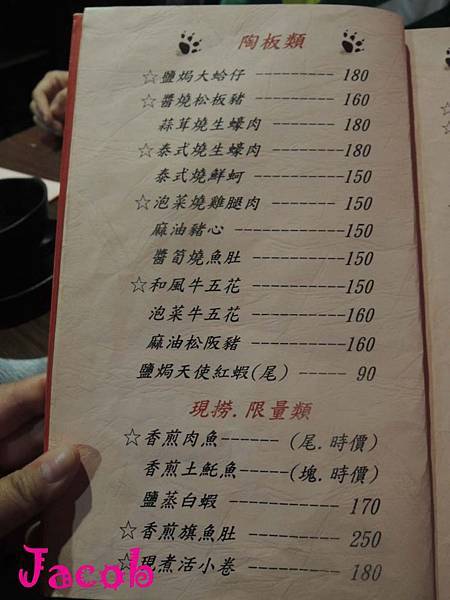 陶板類
☆鹽焗大蛤仔 --------- 180
☆醬燒松板豬 --------- 160
蒜茸燒生蠔肉 --------- 180
☆泰式燒生蠔肉 --------- 180
泰式燒鮮蚵 ----------- 150
☆泡菜燒雞腿肉 ------- 150
麻油豬心 ------------150
醬筍燒魚肚 ----------150
☆和風牛五花 ----------150
泡菜牛五花 ---------- 160
麻油松阪豬 ---------- 160
鹽焗天使紅蝦(尾) ----- 90
現撈.限量類
☆香煎肉魚------ (尾.時價)
香煎土魠魚------(塊.時價)
鹽蒸白蝦 ----------- 170
☆香煎旗魚肚 --------- 250
☆現煮活小卷 --------- 180
Jacob